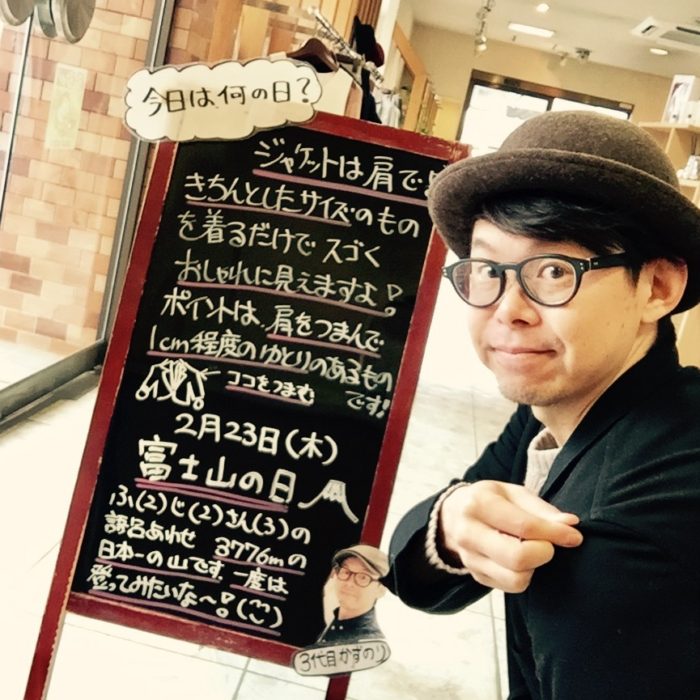 今日は何の日?
ジャケットは肩で
きちんとしたサイズのもの
を着るだけでスゴく
おしゃれに見えますよ!
ポイントは、肩をつまんで
1cm程度のゆとりのあるもの
です!
ココをつまむ
2月23日(木)
富士山の日
ふ(2)じ(2)さん(3)の
語呂あわせ 3776mの
日本一の山です。一度は
登ってみたいな〜!(ご)
3代目かずのり